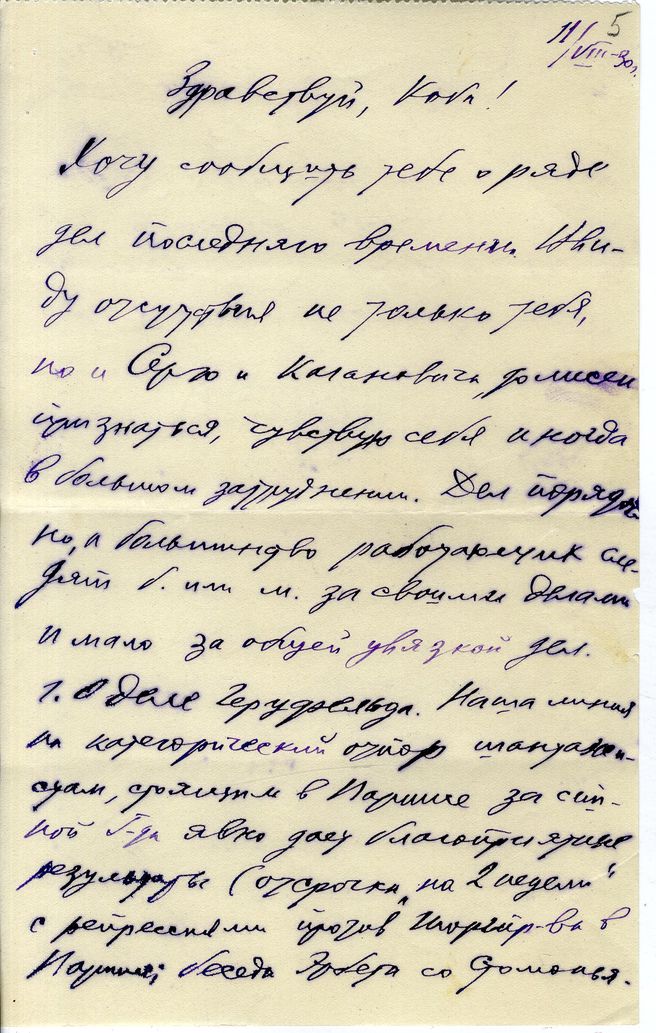 5
11/VIII-30 г.
Здравствуй, Коба!
Хочу сообщить тебе о ряде
дел последнего времени. Вви-
ду отсутствия не только тебя,
но и Серго и Кагановича, должен
признаться, чувствую себя иногда
в большом затруднении. Дел порядоч-
но, а большинство работающих сле-
дят б. или м. за своими делами
и мало за общей увязкой дел.
1. О деле Герцфельда. Наша линия
на категорический отпор шантажи-
стам, стоящим в Париже за спи-
ной Г-да явно дает благоприятные
результаты (отсрочка „на 2 недели“
с репрессиями против Торгпр-ва в
Париже; беседа Эрбета со Стомонья-